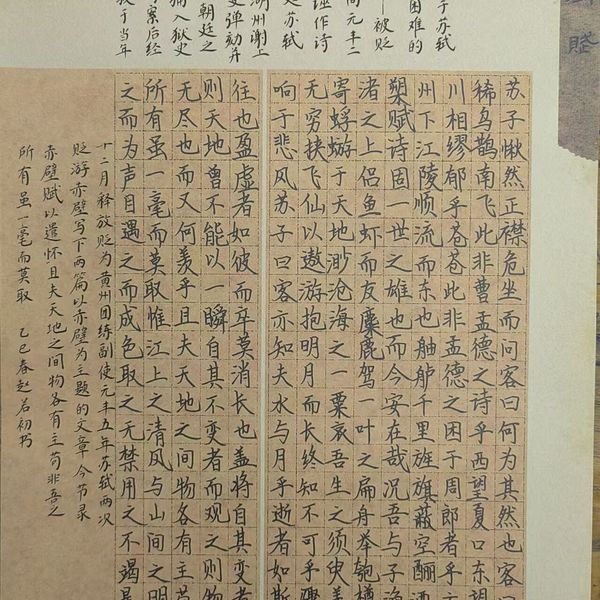 于苏轼
困难的
被贬
间元丰二
诬作诗
苏轼
湖州谢上
受弹劾并
朝廷之
捕入狱史
案后经
于当年
苏子愀然正襟危坐而问客曰何为其然也客
稀乌鹊南飞此非曹孟德之诗乎西望夏口东望
川相缪郁乎苍苍此非孟德之困于周郎者乎
州下江陵顺流而东也舳舻千里旌旗蔽空酾酒
槊赋诗固一世之雄也而今安在哉况吾与子渔
渚之上侣鱼虾而友麋鹿驾一叶之扁舟举匏樽
寄蜉蝣于天地渺沧海之一粟哀吾生之须臾羡
无穷挟飞仙以遨游抱明月而长终知不可乎骤
响于悲风苏子曰客亦知夫水与月乎逝者如斯
往也盈虚者如彼而卒莫消长也盖将自其变者
则天地曾不能以一瞬自其不变者而观之则物
无尽也而又何羡乎且夫天地之间物各有主苟
所有虽一毫而莫取惟江上之清风与山间之明
之而为声目遇之而成色取之无禁用之不竭是
十二月释放贬为黄州团练副使元丰五年苏轼两次
贬游赤壁写下两篇以赤壁为主题的文章今节录
赤壁赋以遣怀且夫天地之间物各有主苟非吾之
所有虽一毫而莫取 乙巳春赵若初书